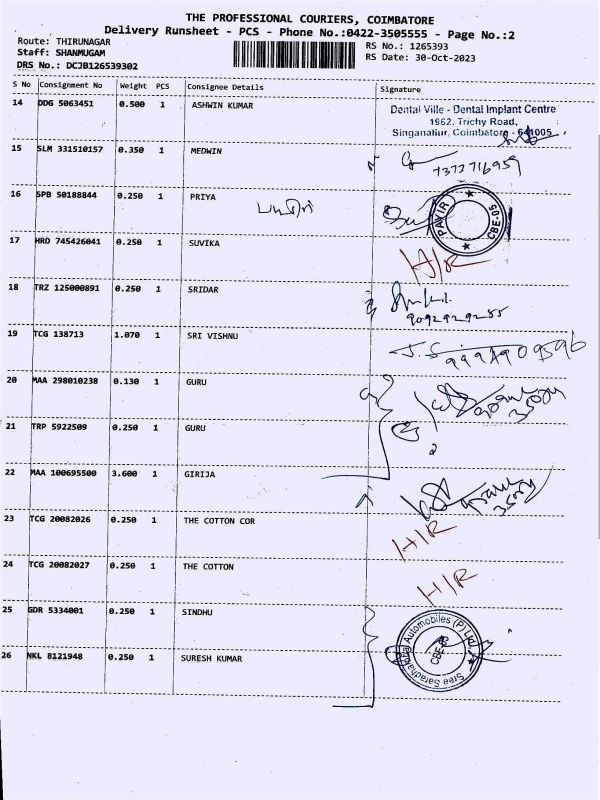 THE PROFESSIONAL COURIERS, COIMBATORE
Delivery Runsheet - PCS - Phone No.:0422-3505555 - Page No.:2
Route: THIRUNAGAR
Staff: SHANMUGAM
DRS No.: DCJB126539302
RS No.: 1265393
RS Date: 30-Oct-2023
S No Consignment No Weight PCS Consignee Details Signature
14 DDG 5063451 0.500 1 ASHWIN KUMAR
Dental Ville - Dental Implant Centre
1962, Trichy Road,
Singanallur, Coimbatore - 641005
15 SLM 331510157 0.350 1 MEDWIN
7372716959
16 SPB 50188844 0.250 1 PRIYA
PAVIR CBE-05
17 HRD 745426041 0.250 1 SUVIKA H/R
18 TRZ 125000891 0.250 1 SRIDAR
9092929255
19 TCG 138713 1.070 1 SRI VISHNU
J.S
20 MAA 298010238 0.130 1 GURU
21 TRP 5922509 0.250 1 GURU
22 MAA 100695500 3.600 1 GIRIJA
23 TCG 20082026 0.250 1 THE COTTON COR H/R
24 TCG 20082027 0.250 1 THE COTTON H/R
25 GDR 5334001 0.250 1 SINDHU
Sree Saradhambal Automobiles (P) Ltd.
26 NKL 8121948 0.250 1 SURESH KUMAR